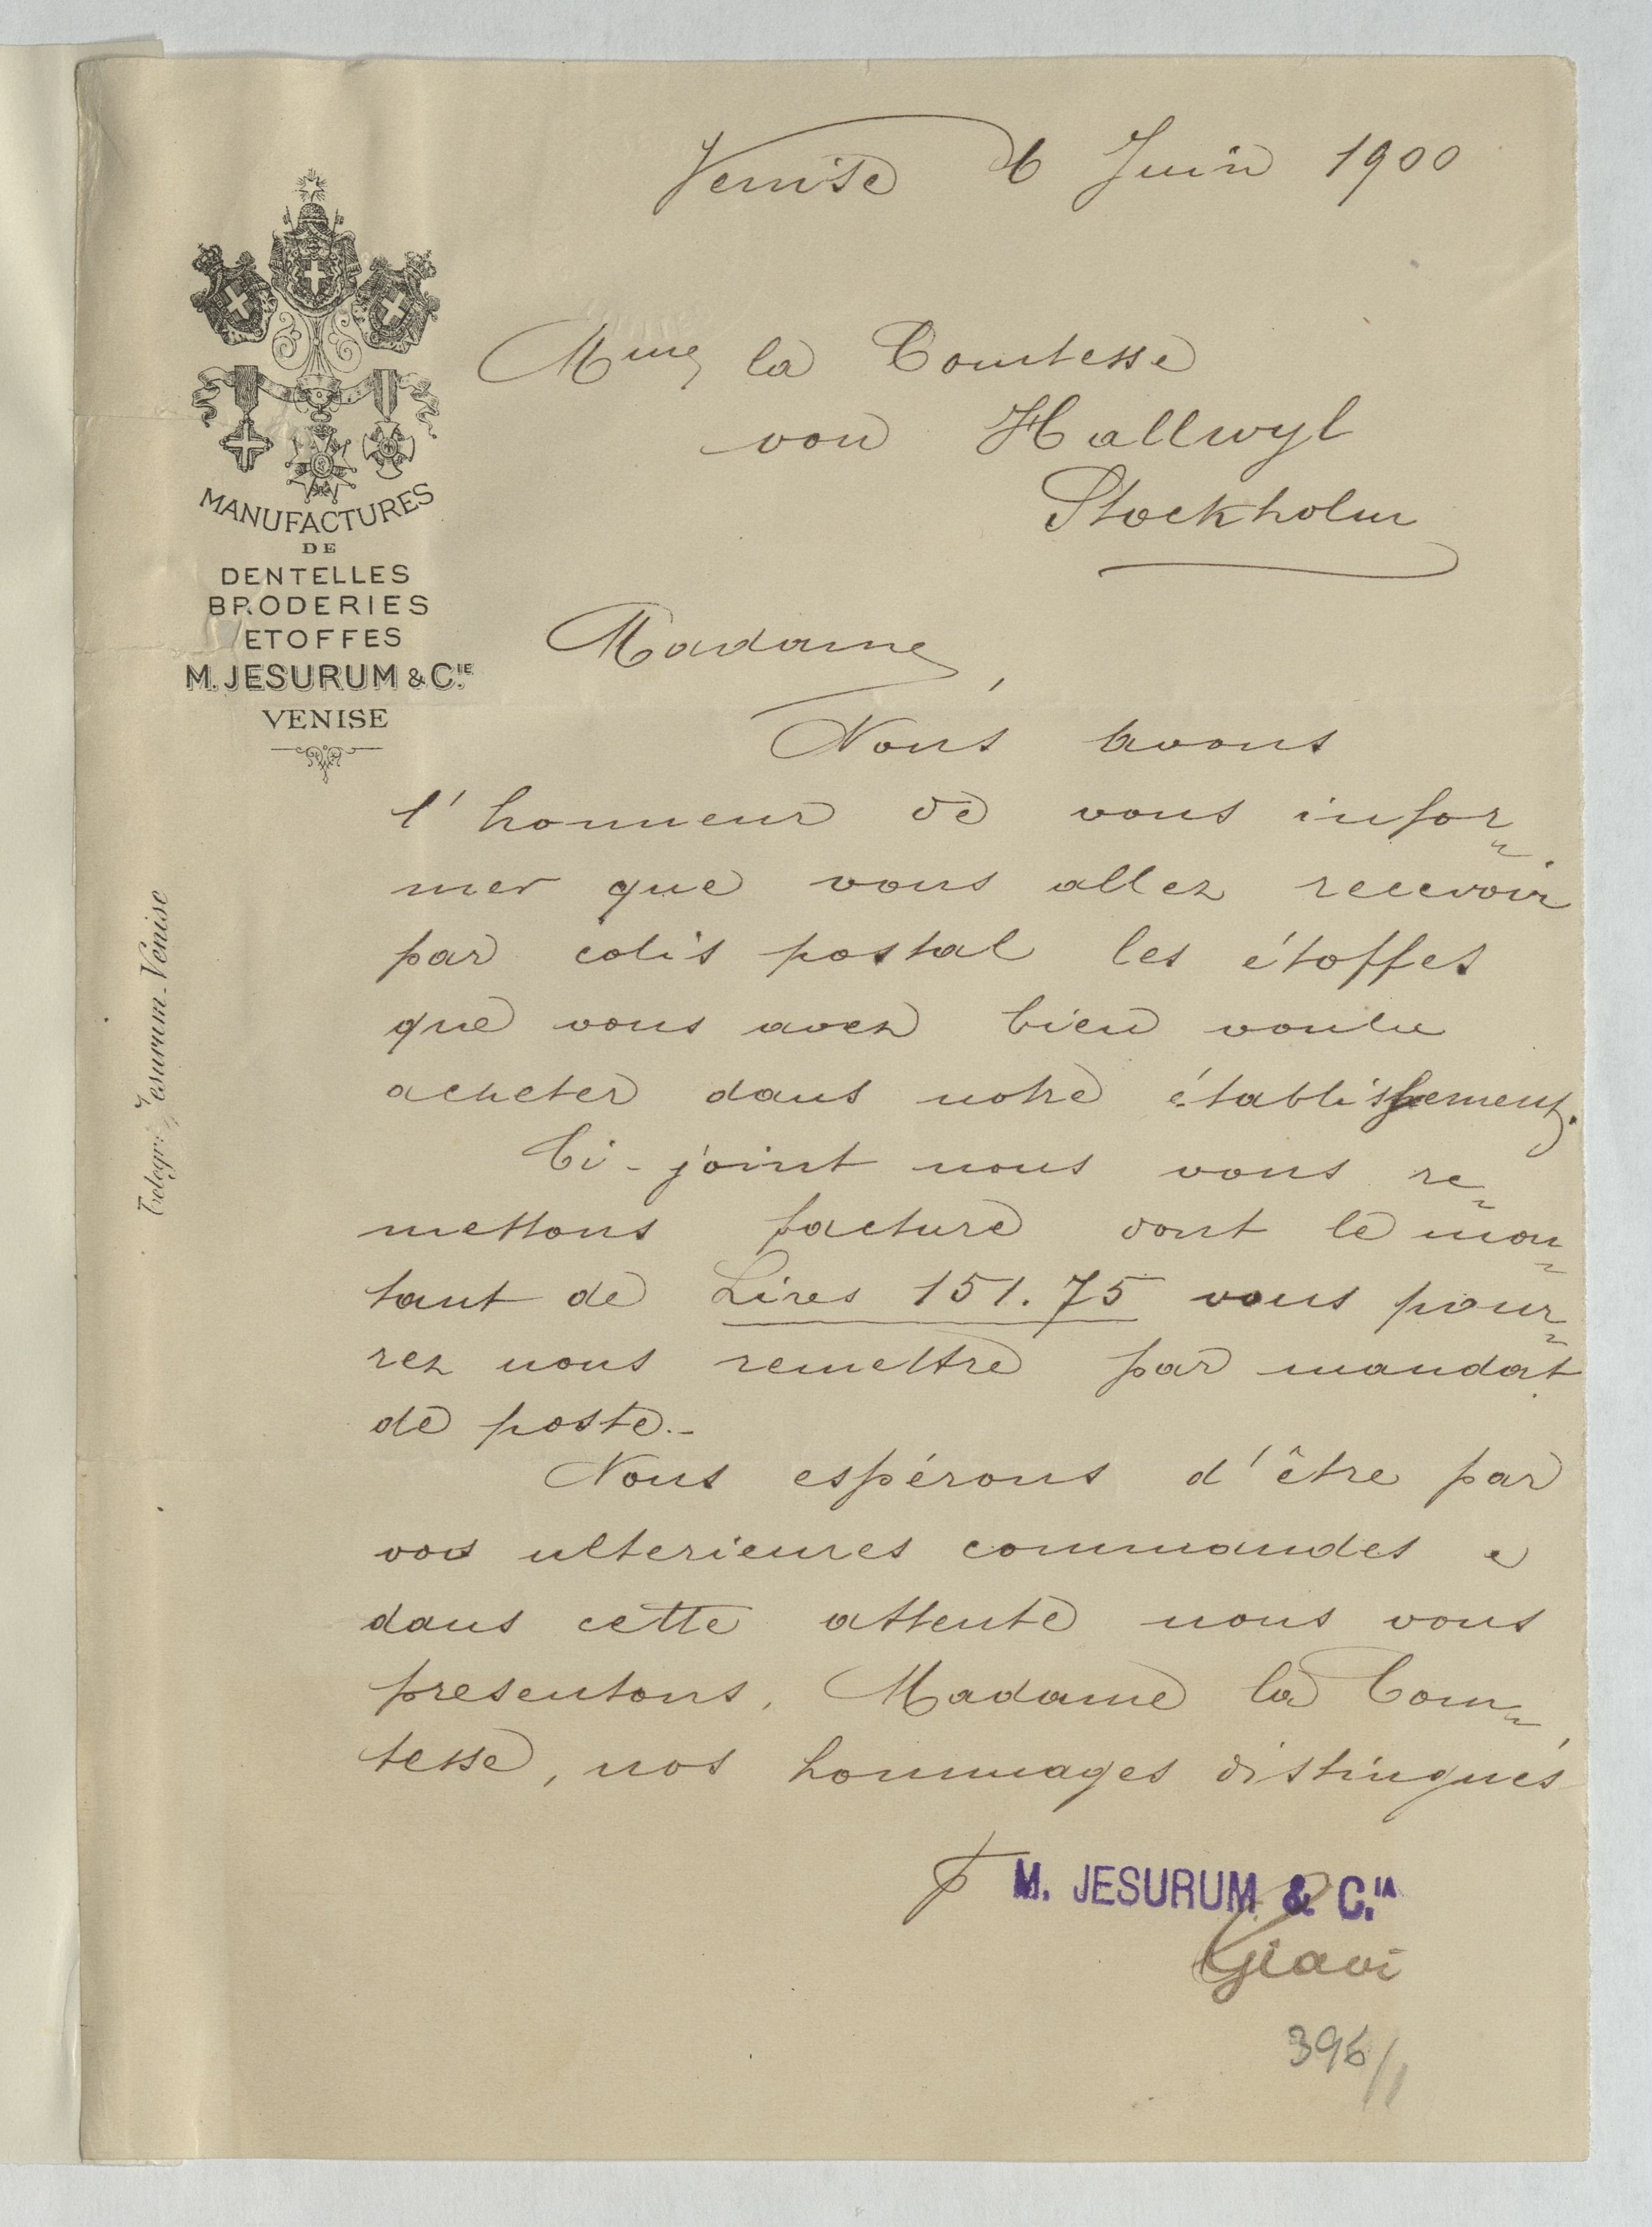 Venise 6 Juin 1900
MANUFACTURES
DE
DENTELLES
BRODERIES
ETOFFES
M. JESURUM & C.IE
VENISE
Mme la Comtesse
von Hallwyl
Stockholm
Madame,
Nous avons
l'honneur de vous infor-
mer que vous allez recevoir
par colis postal les étoffes
que vous avez bien voulu
acheter dans notre établissement.
Ci-joint nous vous re-
mettons facture dont le mon-
tant de Lires 151.75 vous pour-
rez nous remettre par mandat
de poste.-
Nous espérons d'être par
vos ulterieures commandes e
dans cette attente nous vous
presentons, Madame la Com-
tesse, nos hommages distingués
p M. JESURUM & C.IA
Giavi
396/1
Jesurum-Venise